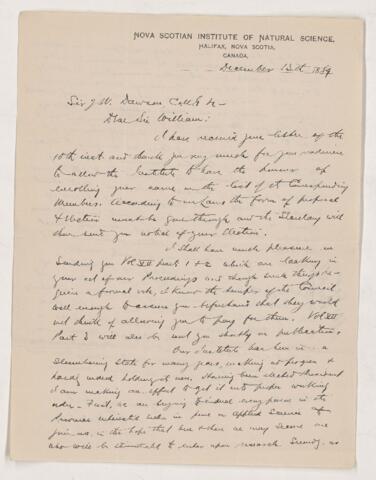 NOVA SCOTIAN INSTITUTE OF NATURAL SCIENCE,
HALIFAX, NOVA SCOTIA,
CANADA.
December 13th 1889
Sir J. W. Dawson
Dear Sir William:
I have received your letter of the
10th inst and thank you very much for your
to allow the Institute to have the honour of
enrolling your name in the list of its Corresponding
Members. According to our Laws the form of proposal
& election must be gone through and the Secretary will
then send you notice of your election.
I shall have much pleasure in
sending you Vol VII parts 1 & 2 which are lacking in
your set of our Proceedings and though such things re-
quire a formal vote, I know the temper of the Council
well enough to assure you beforehand that they would
not think of allowing you to pay for them. Vol VII
Part 3 will also be sent you shortly on publication.
Our Institute has been in a
slumbering state for many years, making no progress &
hardly indeed holding its own. Having been elected President
I am making an effort to get it into proper working
order. First, we are trying to induce every person in the
Province interested in pure or applied Science to
join us, in the hope that
also will be stimulated to enter upon research. Secondly, we